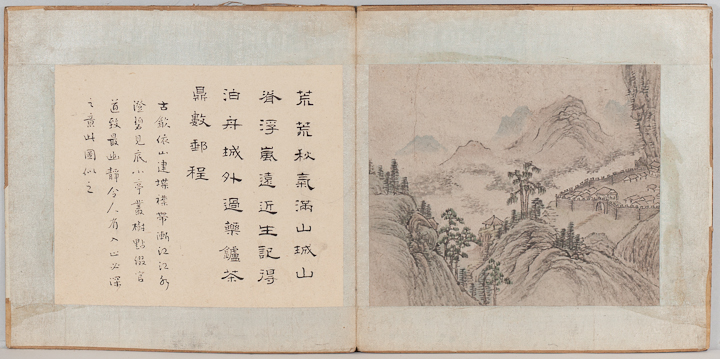 荒荒秋氣滿山城山
脊浮嵐遠近生記得
泊舟城外過藥鑪茶
鼎數郵程
古歙依山建堞襟帶漸江江水
澄碧見底小亭叢樹點綴官
道致最幽靜令人有入山必深
之意此圖似之